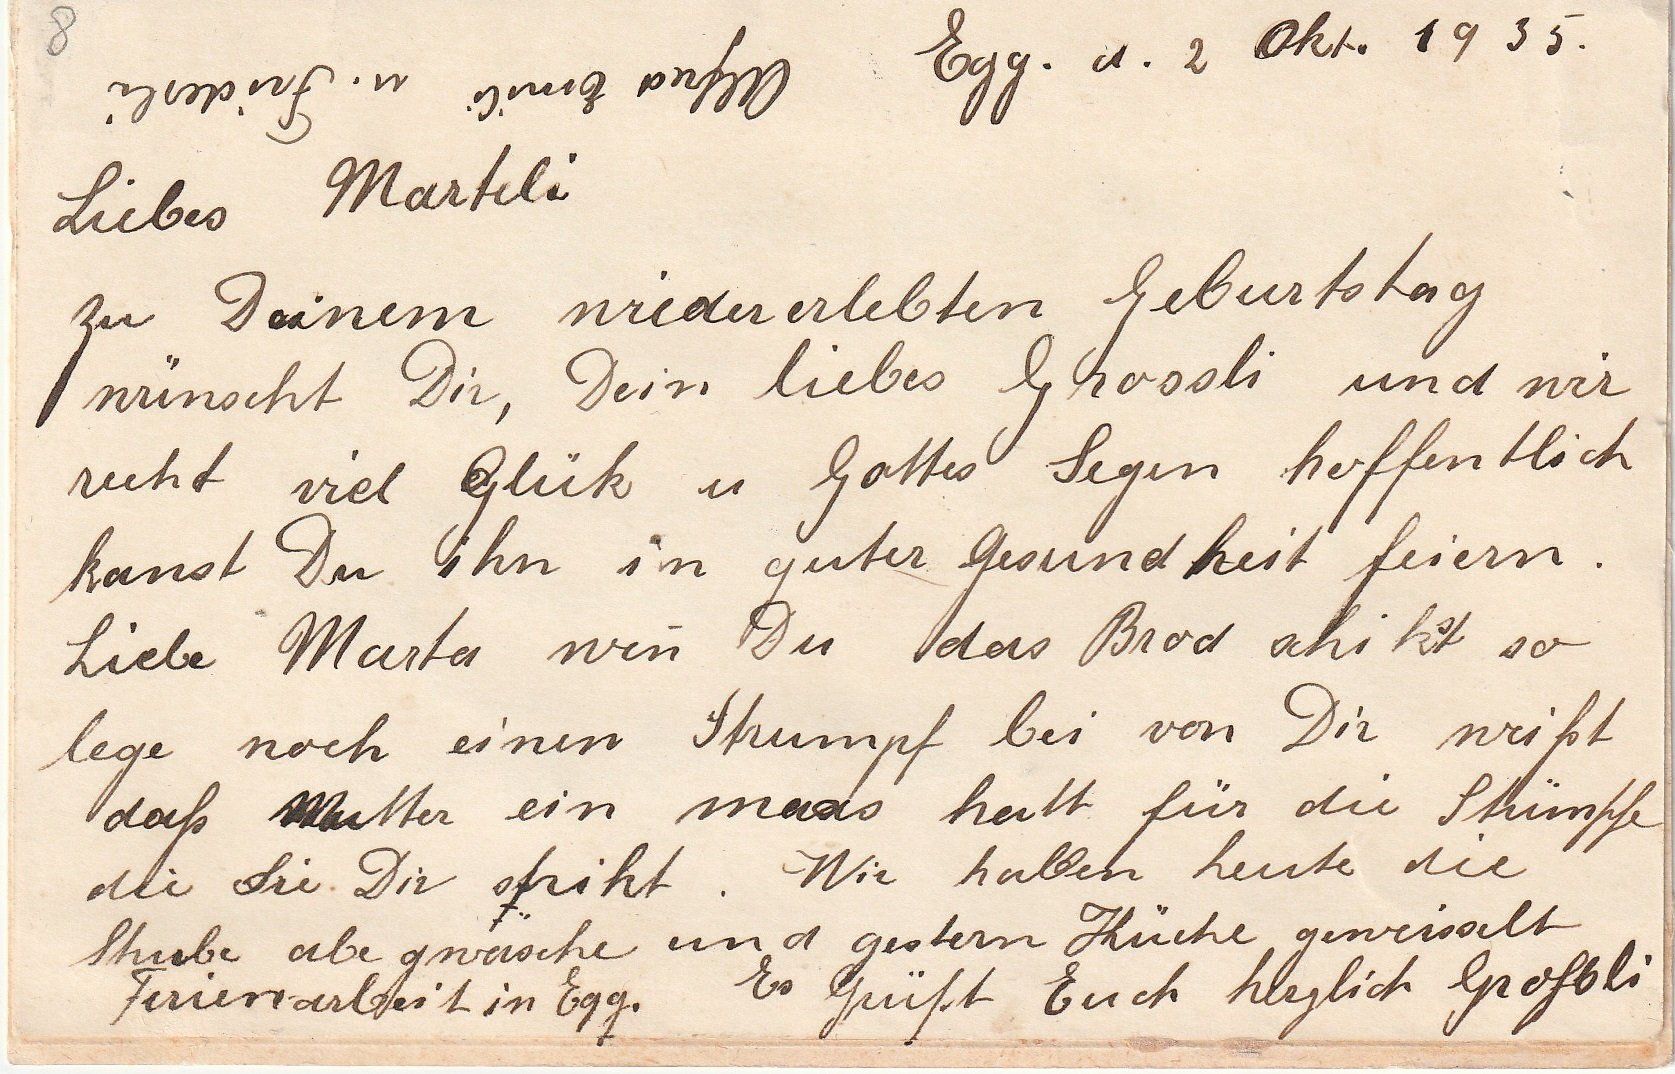 8
Egg. d. 2 Okt. 1935.
Liebes Marteli
zu Deinem wiedererlebten Geburtstag
wünscht Dir, Dein liebes Grossli und wir
recht viel Glük u Gottes Segen hoffentlich
kanst Du ihn in guter Gesundheit feiern.
Liebe Marta wen̄ Du das Brod schikst so
lege noch einen Strumpf bei von Dir weißt
daß Mutter ein maas hatt für die Stümpfe
die Sie Dir strikt. Wir haben heute die
Stube abegwäsche und gestern Küche geweisselt
Ferienarbeit in Egg. Es Grüßt Euch herzlich Großli
Alfred Emili u. Frideli